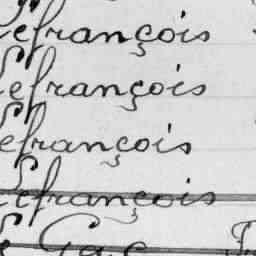 Lefrançois
Lefrançois
Lefrançois
Lefrançois
Le Gac